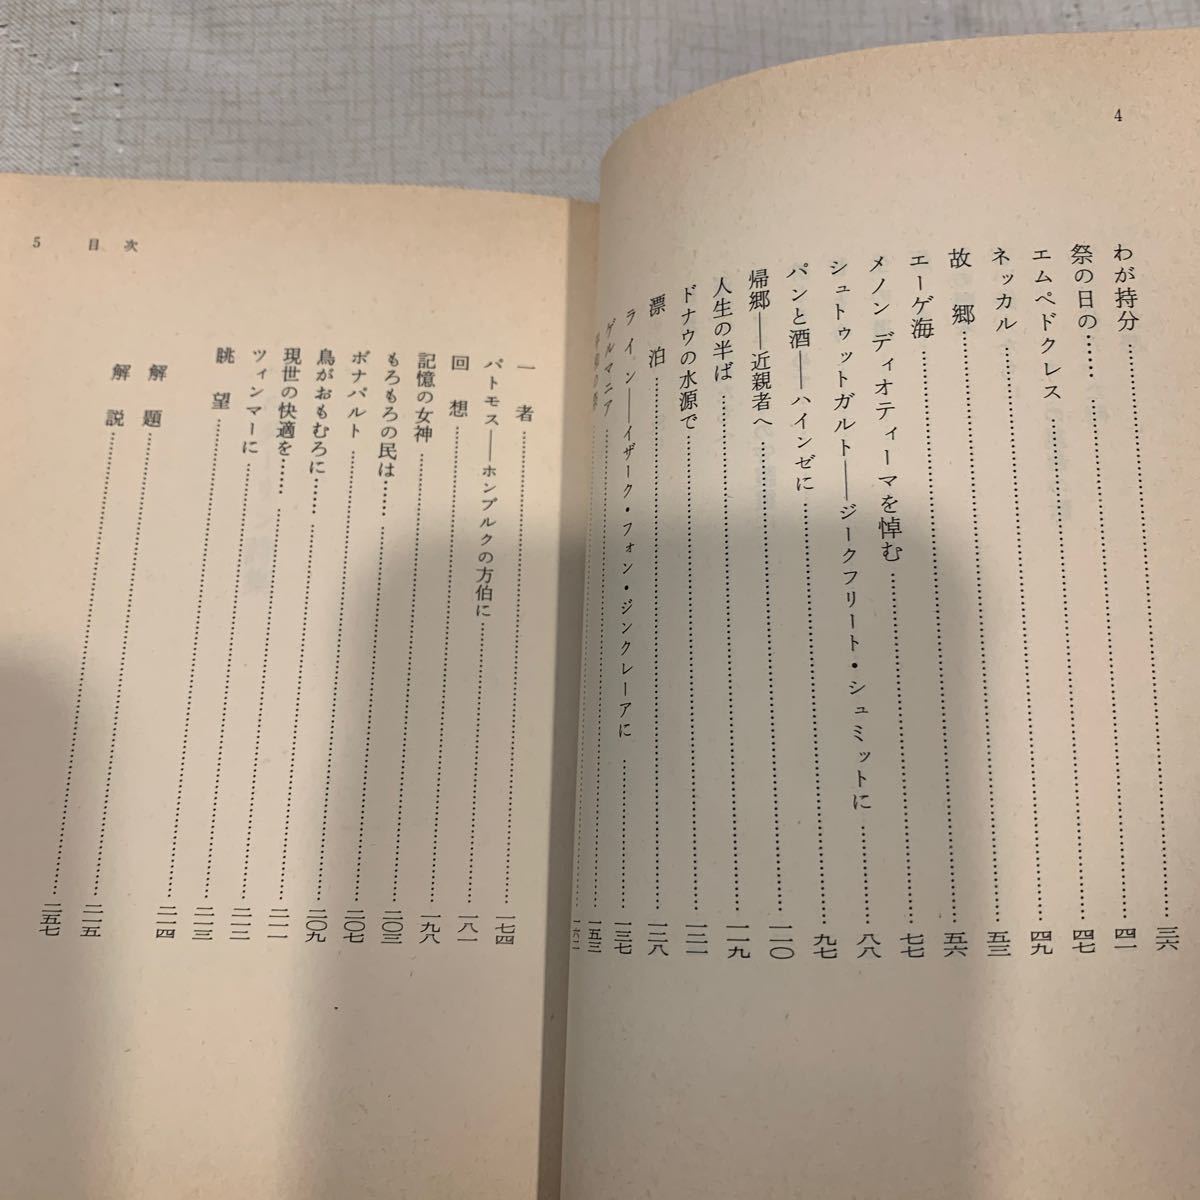 4
わが持分……三六
祭の日の……四一
エムペドクレス……四七
ネッカル……四九
故郷……五三
エーゲ海……五六
メノン ディオティーマを悼む……七七
シュトゥットガルト——ジークフリート・シュミットに……八八
パンと酒——ハインゼに……九七
帰郷——近親者へ……一一〇
人生の半ば……一一九
ドナウの水源で……一二一
漂泊……一二八
ライン——イザーク・フォン・ジンクレーアに……一三七
ゲルマニア……一五三
一六二
5 目次
一者……一七四
パトモス——ホンブルクの方伯に……一八一
回想……一九八
記憶の女神……二〇三
もろもろの民は……二〇七
ボナパルト……二〇九
鳥がおもむろに……二一一
現世の快適を……二一二
ツィンマーに……二一三
眺望……二一四
解題……二一五
解説……二五七